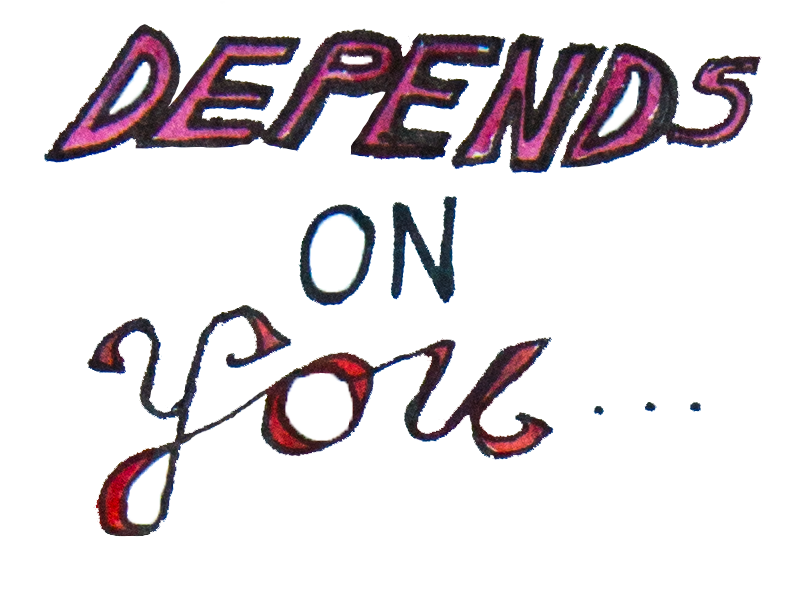 DEPENDS
ON
you...